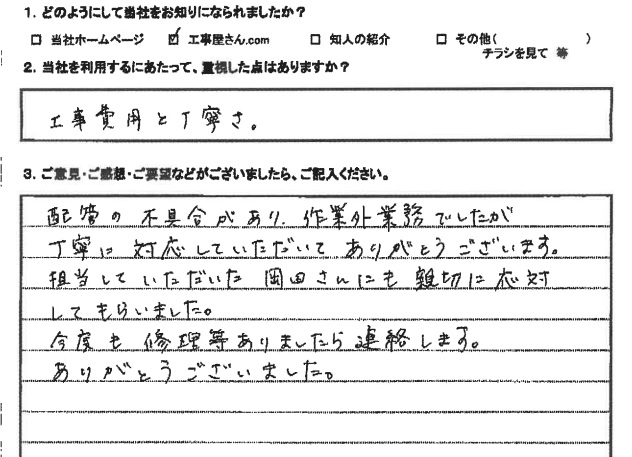 1. どのようにして当社をお知りになられましたか？
□ 当社ホームページ ☑ 工事屋さん.com □ 知人の紹介 □ その他( )
チラシを見て 等
2. 当社を利用するにあたって、重視した点はありますか？
工事費用と丁寧さ。
3. ご意見・ご感想・ご要望などがございましたら、ご記入ください。
配管の不具合があり、作業外業務でしたが
丁寧に対応していただいてありがとうございます。
担当していただいた岡田さんにも親切に応対
してもらいました。
今度も修理等ありましたら連絡します。
ありがとうございました。